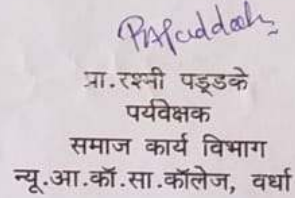 प्रा.रश्मी पड्डके
पर्यवेक्षक
समाज कार्य विभाग
न्यू.आ.कॉ.सा.कॉलेज, वर्धा